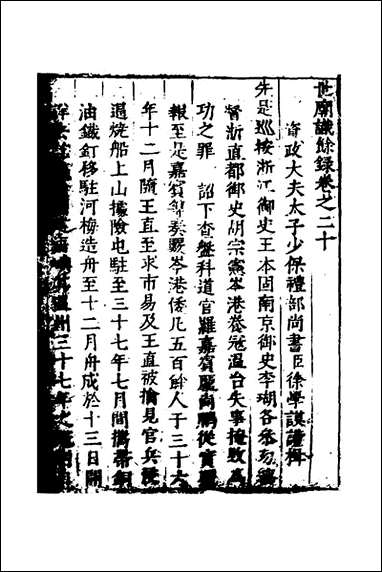 世廟識餘錄卷之二十
資政大夫太子少保禮部尚書臣徐學謨謹輯
先是巡按浙江御史王本固南京御史李瑚各參劾總
督浙直都御史胡宗憲岑港養寇溫台失事掩敗為
功之罪 詔下查盤科道官羅嘉賓龐尚鵬從實
報至是嘉賓等奏駁岑港倭凡五百餘人于三十六
年十二月隨王直至求市易及王直被擒見官兵
逼燒船上山據險屯駐至三十七年七月間攜帶銅
油鐵釘移駐河梅造舟至十二月舟成於十三日開
州三十七年